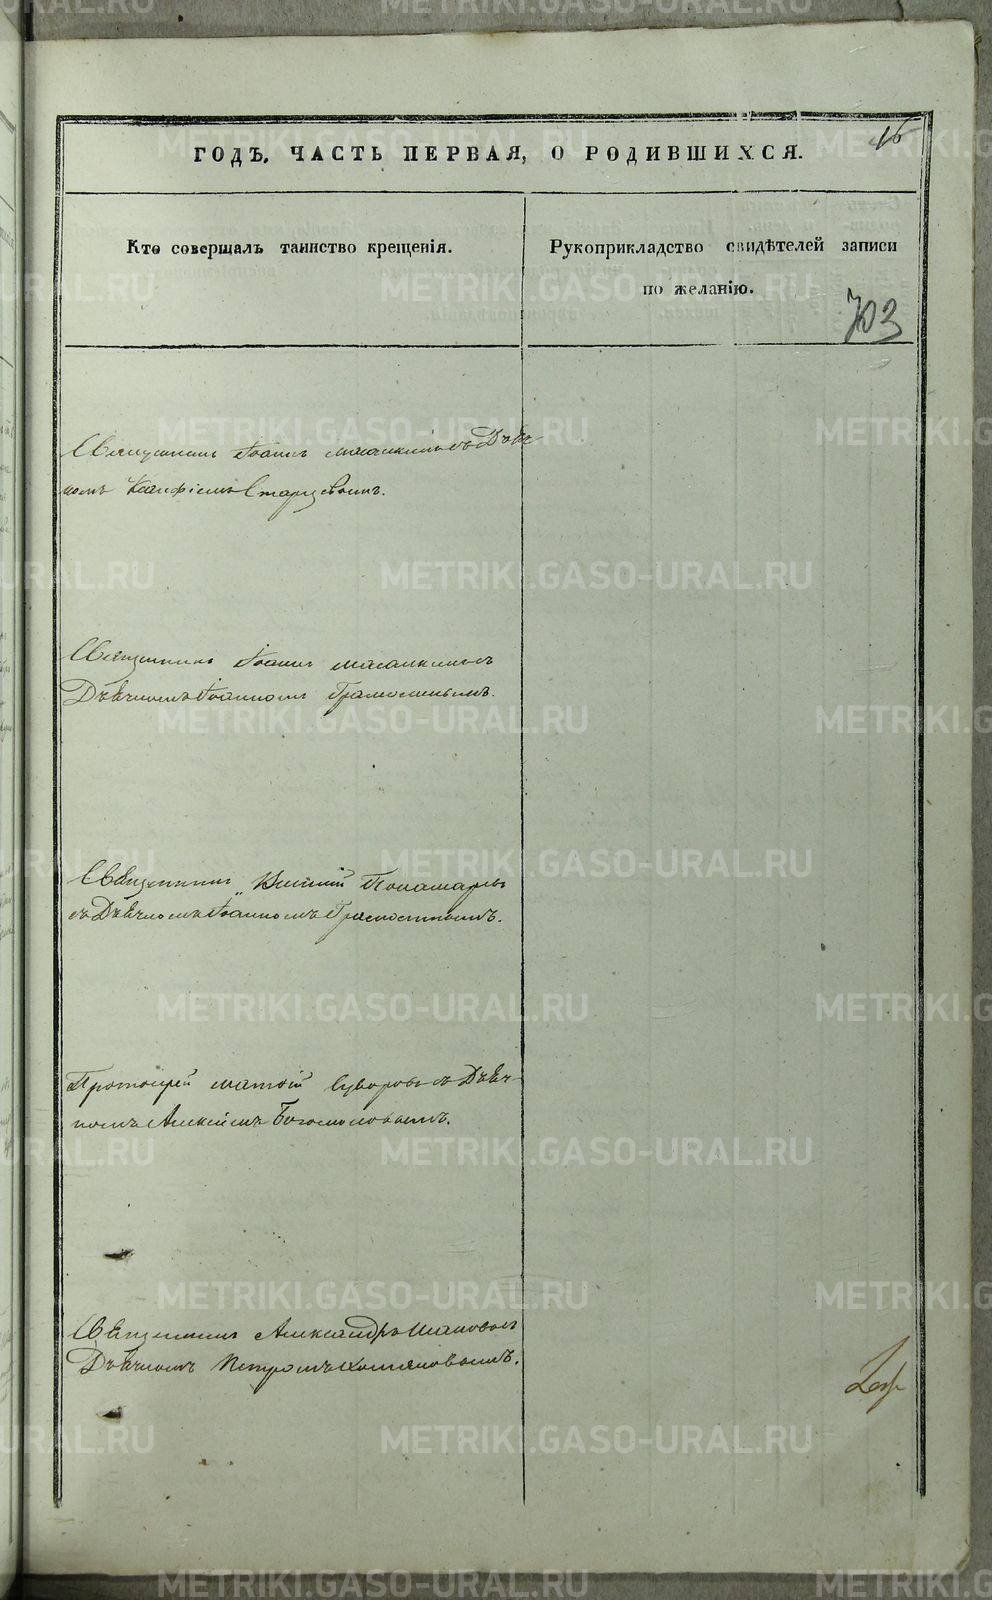 16
ГОДЪ, ЧАСТЬ ПЕРВАЯ, О РОДИВШИХСЯ.
Кто совершалъ таинство крещенія.
Рукоприкладство свидѣтелей записи
по желанію.
703
Священникъ Іоаннъ съ Дьяч-
комъ Старцевымъ.
Священникъ Іоаннъ съ
Дьячкомъ Іоанномъ
Священникъ Пономаревъ
съ Дьячкомъ Іоанномъ
Протоіерей Матѳій Суворовъ съ Дьяч-
комъ Алексіемъ Богословымъ.
Священникъ Александръ
Дьячкомъ Петромъ
METRIKI.GASO-URAL.RU